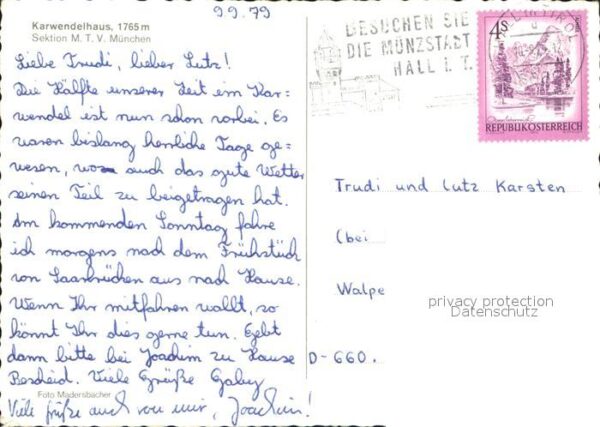 9.9.79
Karwendelhaus, 1765 m
Sektion M. T. V. München
Liebe Trudi, lieber Lutz!
Die Hälfte unserer Zeit im Kar=
wendel ist nun schon vorbei. Es
waren bislang herrliche Tage ge=
wesen, wozu auch das gute Wetter
seinen Teil zu beigetragen hat.
Am kommenden Sonntag fahre
ich morgens nach dem Frühstück
von Saarbrücken aus nach Hause.
Wenn Ihr mitfahren wollt, so
könnt Ihr dies gerne tun. Gebt
dann bitte bei Joachim zu Hause
Bescheid. Viele Grüße Gaby
Viele Grüße auch von mir, Joachim!
Foto Madersbacher
BESUCHEN SIE
DIE MÜNZSTADT
HALL I. T.
4S
REPUBLIK ÖSTERREICH
Trudi und Lutz Karsten
(bei
Walpe
privacy protection
Datenschutz
D-660.